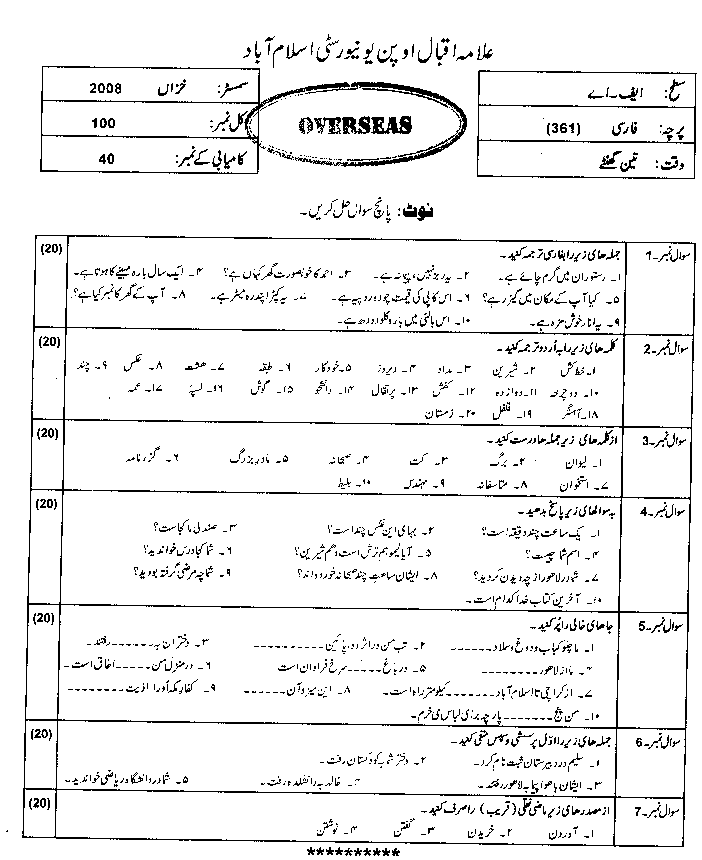 علامہ اقبال اوپن یونیورسٹی اسلام آباد
سطح: ایف۔اے
پرچہ: فارسی (361)
وقت: تین گھنٹے
OVERSEAS
سمسٹر: خزاں 2008
کل نمبر: 100
کامیابی کے نمبر: 40
نوٹ: پانچ سوال حل کریں۔
سوال نمبر۔1 جملہ ھای زیر را بفارسی ترجمہ کنید۔ (20)
۱۔ رستوران میں گرم چائے ہے۔ ۲۔ یہ ریز نہیں، پیانہ ہے۔ ۳۔ احمد کا خوبصورت گھر کہاں ہے؟ ۴۔ ایک سال بارہ مہینے کا ہوتا ہے۔
۵۔ کیا آپ کے مکان میں گیزر ہے؟ ۶۔ اس کاپی کی قیمت چودہ روپیہ ہے۔ ۷۔ یہ کپڑا پندرہ میٹر ہے۔ ۸۔ آپ کے گھر کا نمبر کیا ہے؟
۹۔ یہ انار خوش مزہ ہے۔ ۱۰۔ اس بالٹی میں بارہ کلو دودھ ہے۔
سوال نمبر۔2 کلمہ ھای زیر را بہ اُردو ترجمہ کنید۔ (20)
۱۔ خط کش ۲۔ شیرین ۳۔ مداد ۴۔ دیروز ۵۔ خودکار ۶۔ طبقہ ۷۔ ھشت ۸۔ عکس ۹۔ چند
۱۰۔ دوچرخہ ۱۱۔ دوازدہ ۱۲۔ کفش ۱۳۔ پرتقال ۱۴۔ دانشجو ۱۵۔ گوش ۱۶۔ لپہ ۱۷۔ عمہ
۱۸۔ آہنگر ۱۹۔ فلفل ۲۰۔ زمستان
سوال نمبر۔3 از کلمہ ھای زیر جملہ ھا درست کنید۔ (20)
۱۔ لیوان ۲۔ برگ ۳۔ کت ۴۔ صبحانہ ۵۔ مادر بزرگ ۶۔ گزرنامہ
۷۔ استخوان ۸۔ متاسفانہ ۹۔ مہندس ۱۰۔ بلیط
سوال نمبر۔4 بہ سوالھای زیر پاسخ بدھید۔ (20)
۱۔ یک ساعت چند دقیقہ است؟ ۲۔ بہای این عکس چند است؟ ۳۔ صندلی ما کجاست؟
۴۔ اسم شما چیست؟ ۵۔ آیا لیمو ہم ترش است و ہم شیرین؟ ۶۔ شما کجا درس خواندید؟
۷۔ شما در لاھور از چہ دیدن کردید؟ ۸۔ ایشان ساعت چند صبحانہ خوردہ اند؟ ۹۔ شما چہ مرضی گرفتہ بودید؟
۱۰۔ آخرین کتاب خدا کدام است۔
سوال نمبر۔5 جاھای خالی را پُر کنید۔ (20)
۱۔ ما چلو کباب و دوغ و سلاد۔۔۔۔۔۔ ۲۔ تب من در اثر دو، پائین۔۔۔۔۔۔۔۔ ۳۔ دختران بہ۔۔۔۔۔رفتند۔
۴۔ ما از لاھور۔۔۔۔۔۔ ۵۔ در باغ۔۔۔۔۔سرخ فراوان است ۶۔ در منزل من۔۔۔۔۔اطاق است۔
۷۔ از کراچی تا اسلام آباد۔۔۔۔۔کیلومتر راہ است۔ ۸۔ این میز و آن۔۔۔۔۔۔ ۹۔ کفار مکہ او را اذیت۔۔۔۔۔۔۔
۱۰۔ من پنج۔۔۔۔۔۔پارچہ برای لباس می خرم۔
سوال نمبر۔6 جملہ ھای زیر را اوّل پرسشی و سپس منفی کنید۔ (20)
۱۔ سلیم در دبیرستان ثبت نام کرد۔ ۲۔ دختر شما بہ کودکستان رفت۔
۳۔ ایشان با ھواپیما بہ لاھور رفتند۔ ۴۔ خالد بہ دانشکدہ رفت۔ ۵۔ شما در دانشگاہ ریاضی خواندید۔
سوال نمبر۔7 از مصدر ھای زیر ماضی نقلی (قریب) را صرف کنید۔ (20)
۱۔ آوردن ۲۔ خریدن ۳۔ گفتن ۴۔ نوشتن
**********